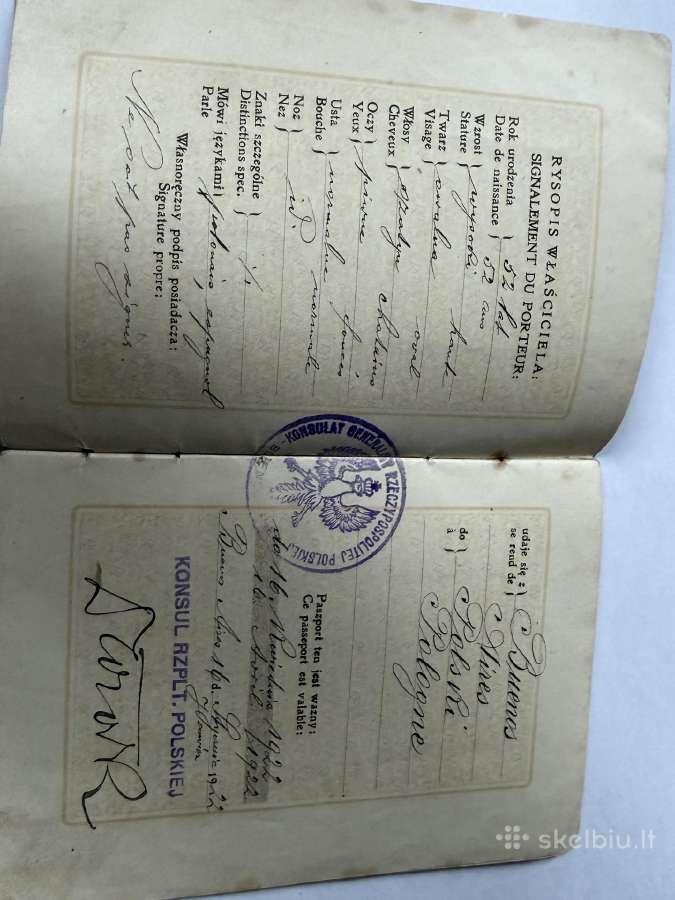 RYSOPIS WŁAŚCICIELA:
SIGNALEMENT DU PORTEUR:
Rok urodzenia } 52 lat
Date de naissance } 52 ans
Wzrost } wysoki
Stature } haut
Twarz } owalna
Visage } oval
Włosy
Cheveux } chatains
Oczy } piwne
Yeux } foncés
Usta } normalne
Bouche } normale
Noz
Nez } id.
Znaki szczególne
Distinctions spec. }
Mówi językami
Parle } polonais, espagnol
Własnoręczny podpis posiadacza:
Signature propre:
Ne sait pas signer.
KONSULAT GENERALNY RZECZYPOSPOLITEJ POLSKIEJ
udaje się z
se rend de } Buenos
Aires
do
à } Polski
Pologne
Paszport ten jest ważny:
Ce passeport est valable:
do 16 Kwietnia 1922
16 Avril 1922
Buenos Aires 16 d. Stycznia 1922
Janvier
KONSUL RZPLT. POLSKIEJ
skelbiu.lt